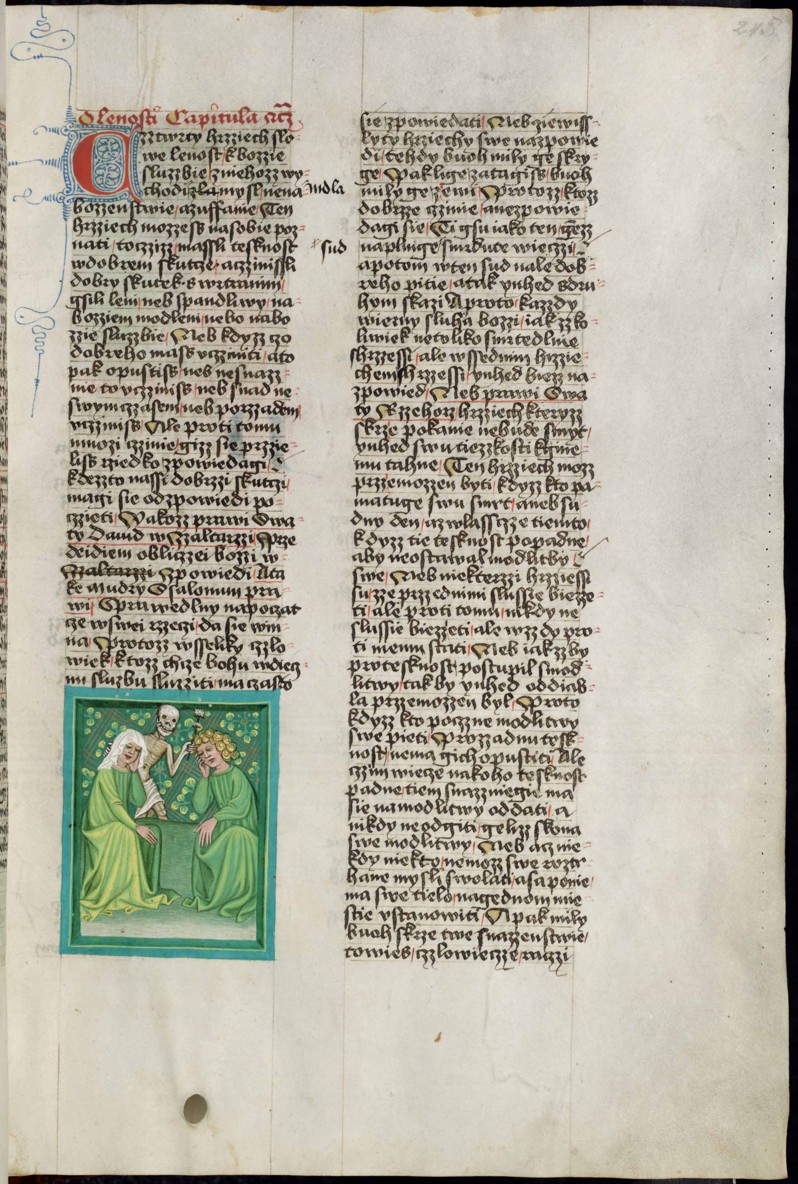 O lenosti Capitula
Cztwrty hrziech slo
we lenost k bozzie
sluzzbie z niehozz wy
chodi zla mysl nena
mdla
bozzenstwie a zuffanie Ten
hrziech mozzess na sobie poz
nati toczizz massli tesknost
sud
w dobrem skutcze aczinissli
dobry skutek s wrtranim
gsili leni neb spandliwy na
bozziem modleni nebo na bo
zzie sluzzbie Neb kdyzz czo
dobreho mass vcziniti a to
pak opustiss neb nesnazz
nie to vcziniss neb snad ne
swym czasem neb porzzadem
vcziniss Ale proti tomu
mnozi czinie gizz sie przzie
liss rziedko zpowiedagi
kdezzto massi dobrzzi skutczi
magi sie od zpowiedi po
czieti Yakozz prawi Swa
ty Dauid w Zzaltarzzi Prze
deidiem obliczzei bozzi w
zzaltarzzi zpowiedi A ta
ke mudry Ssalomun pra
wi Sprawedlny na poczat
cze w swei rzzeczi da sie win
na Protozz wsseliky czlo
wiek ktozz chcze bohu wdiecz
ni sluzbu sluzziti ma czasto
sie zpowiedati Neb ziewiss
lyty hrziechy swe nazpowie
di tehdy buoh mily ge skry
ge Pakli ge zatagiss buoh
mily ge zewi Protozz ktozz
dobrze czinie a nezpowie
dagi sie Ti gsu iako ten gezz
naplniuge smrdute wieczi
a potom w ten sud nale dob
reho pitie a tak ynhed s dru
hym skazi A proto kazzdy
wierny sluha bozzi iak zzko
liwiek netoliko smrtedlnie
shrzessi ale wssednim hrzzie
chem shrzessi ynhed biezz na
zpowied Neb prawi Swa
ty Rzzehorz hrzziech kteryzz
skrze pokanie nebude smyt
ynhed swu tiezzkosti k gine
mu tahne Ten hrzziech mozz
przzemozzen byti kdyzz kto pa
matuge swu smrt a neb su
dny den a z wlasscze tiemto
kdyzz tie tesknost popadne
aby neostawal modlitby
swe Neb niekterzzi hrzziessi
su zze przzed nimi slussie biezze
ti ale proti tomu nikdy ne
slussie biezzeti ale wzzdy pro
ti niemu stati Neb iakzz by
pro tesknost postupil s mod
litwy tak by ynhed od diab
la przzemozzen byl Proto
kdyzz kto poczne modlitwy
swe pieti Prozzadnu tesk
nost nema gich opustiti Ale
czim wiecze na koho tesknost
padne tiem snazzniegie ma
sie na modlitwy oddati a
nikdy neodgiti gelizz skona
swe modlitwy Neb acz nie
kdy niekto nemozz swe roztr
hane mysli swolati a sa ponie
ma swe tielo na gednom mie
stie vstanowiti A pak mily
buoh skrze twe snazzenstwie
towies czlowiecze raczi